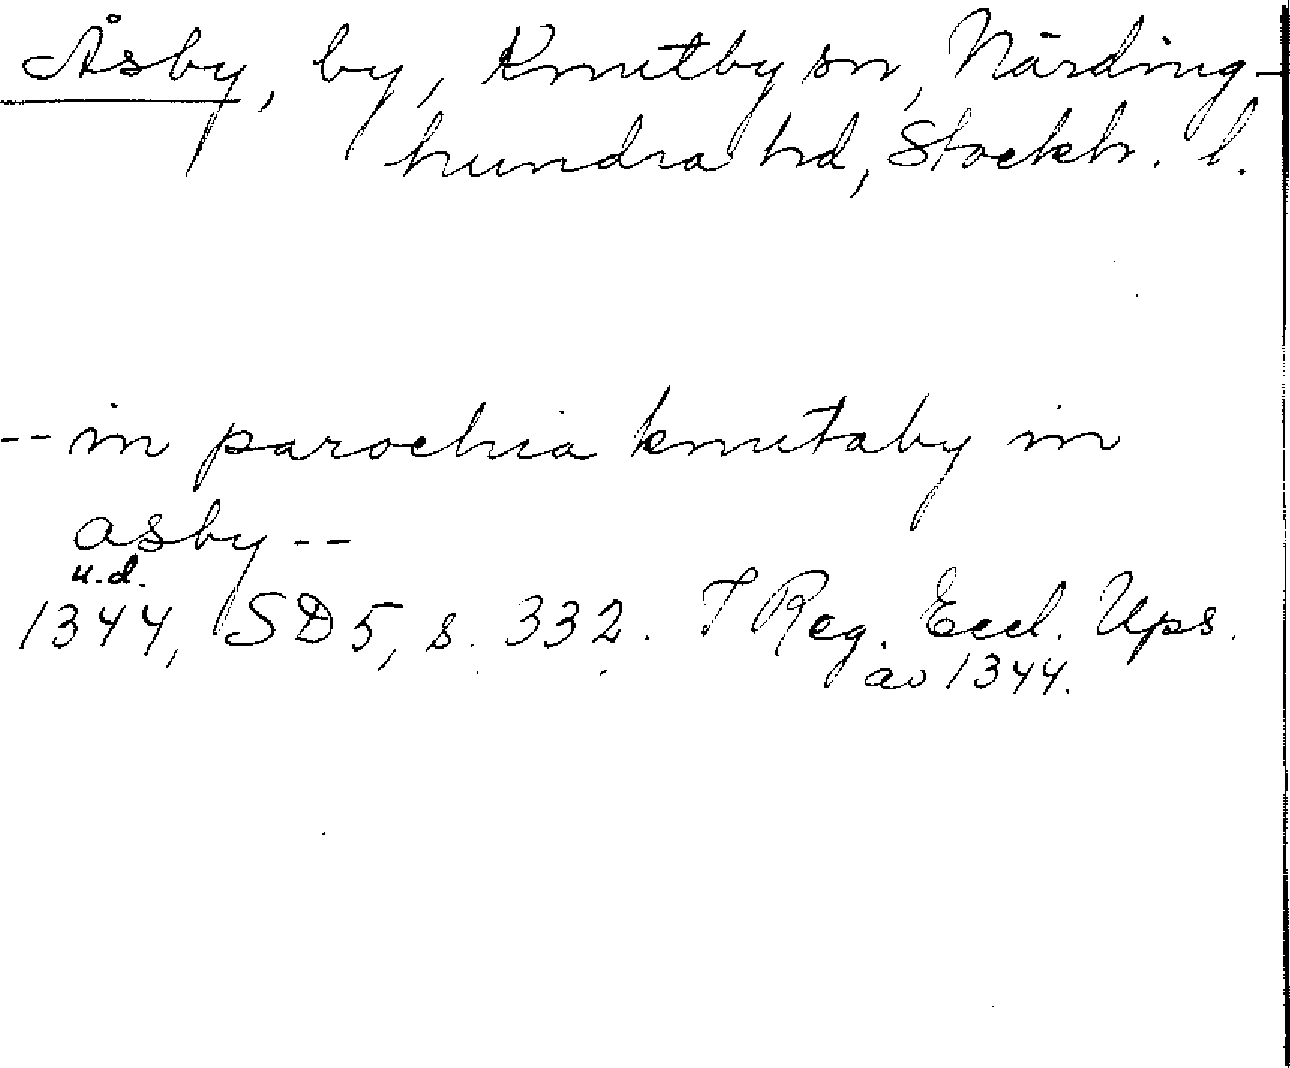 Åsby, by, Knutby sn, Närding-
hundra hd, Stockh. l.
-- in parochia knutaby in
asby --
u.d.
1344, SD 5, s. 332. T Reg. Eccl. Ups.
av 1344.